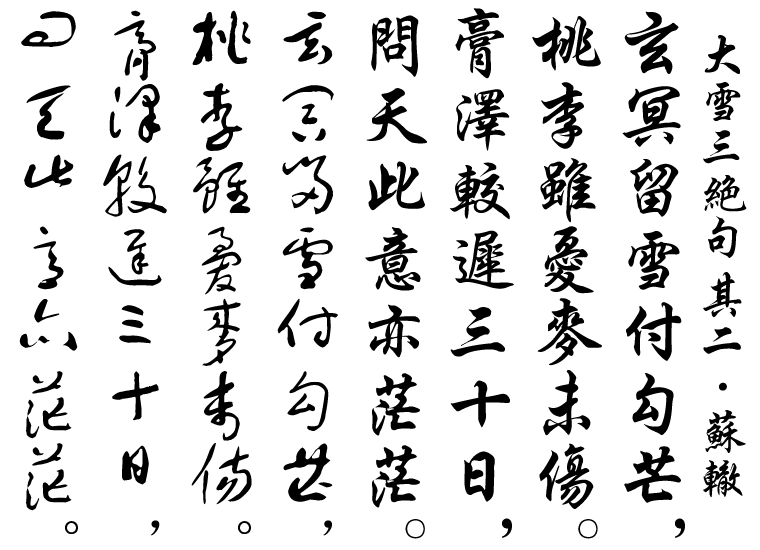 大雪三絕句其二・蘇轍
玄冥留雪付勾芒，
桃李雖憂麥未傷。
膏澤較遲三十日，
問天此意亦茫茫。
玄冥留雪付勾芒，
桃李雖憂麥未傷。
膏澤較遲三十日，
問天此意亦茫茫。